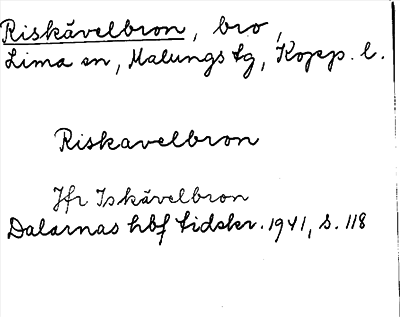 Riskåvelbron, bro,
Lima sn, Malungs tg, Kopp. l.
Riskavelbron
Jfr Iskåvelbron
Dalarnas hbf tidskr. 1941, s. 118